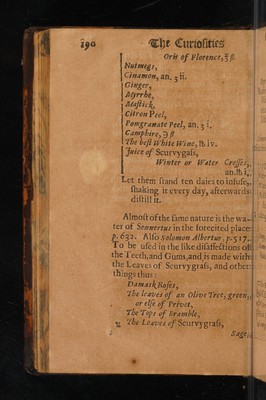 190 The Curiosities
Oris of Florence, ℥ ß
Nutmegs,
Cinamon, an. ʒ ii.
Ginger,
Myrrhe,
Mastick,
Citron Peel,
Pomgranate Peel, an. ʒ i.
Camphire, ℈ ß
The best White Wine, ℔ iv.
Juice of Scurvygrass,
Winter or Water Cresses,
an. ℔ i,
Let them stand ten daies to infuse,
shaking it every day, afterwards
distill it.
Almost of the same nature is the wa-
ter of Sennertus in the forecited place
p. 632. Also Solomon Albertus, p. 517.
To be used in the like disaffections of
the Teeth, and Gums, and is made with
the Leaves of Scurvygrass, and other
things thus:
Damask Roses,
The leaves of an Olive Tree, green,
or else of Privet,
The Tops of Bramble,
℞ The Leaves of Scurvygrass,
Sage